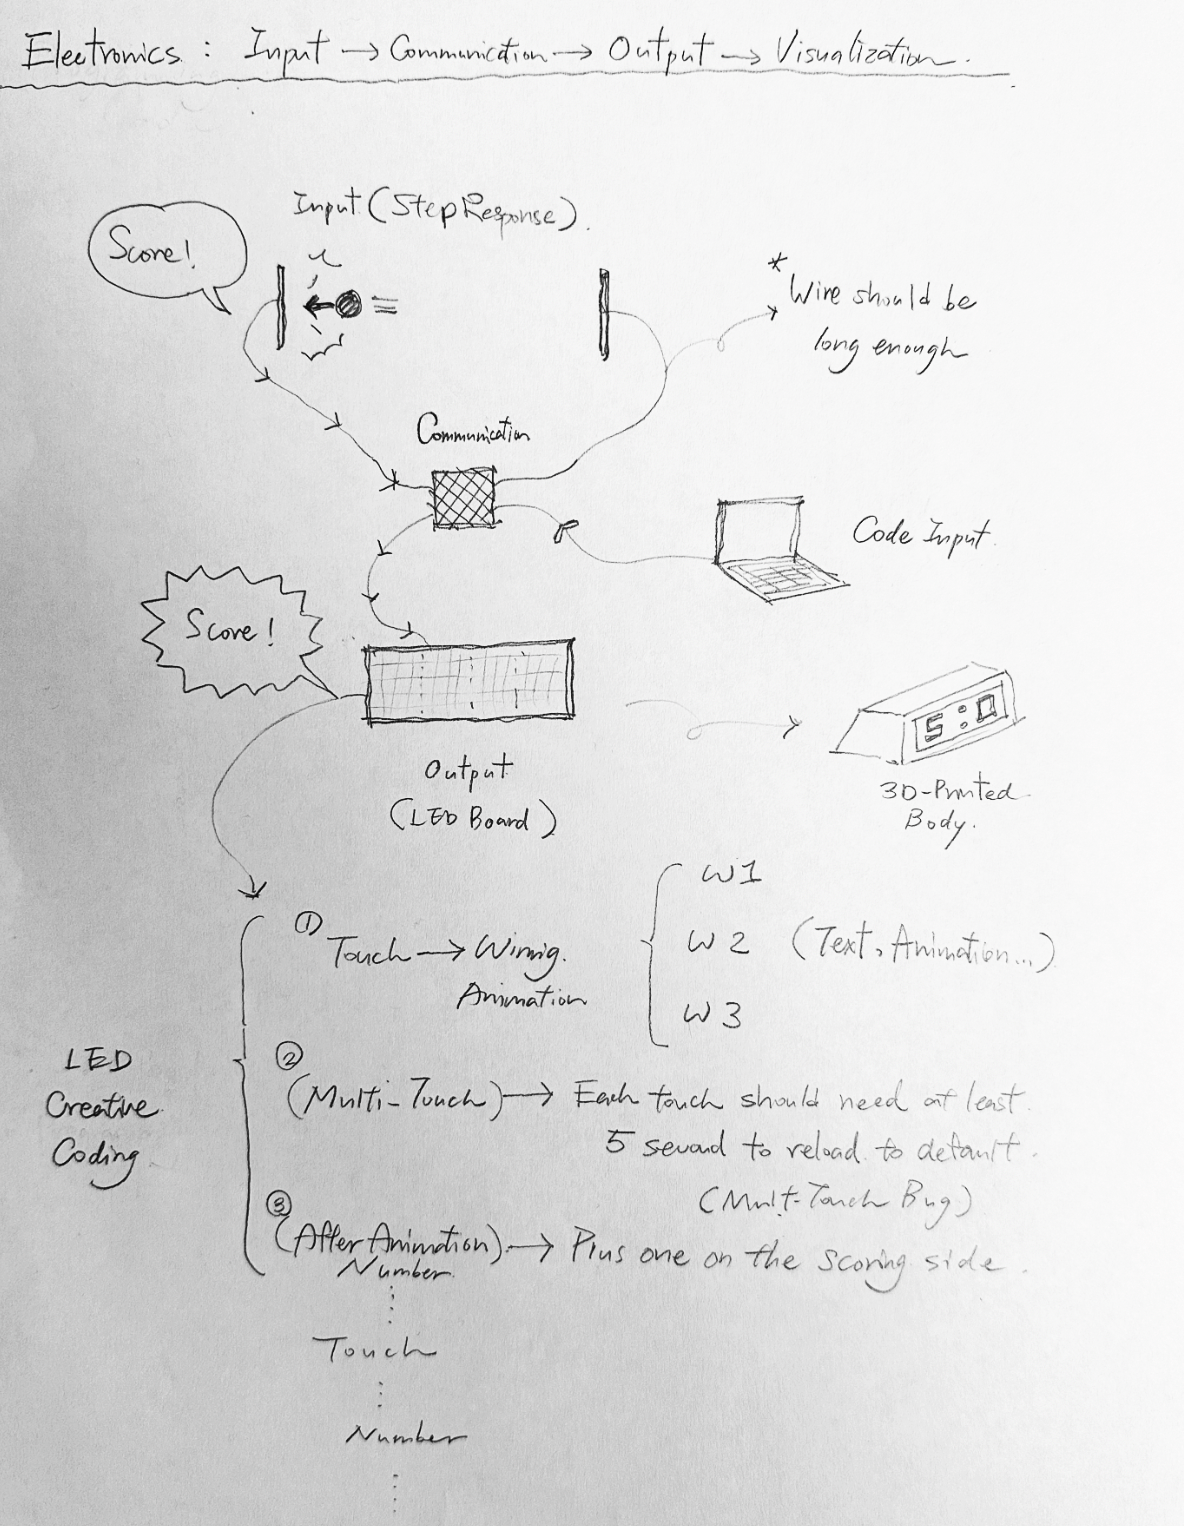 Electronics : Input → Communication → Output → Visualization.
Input (Step Response).
Score!
* Wire should be
long enough
Communication
Code Input.
Score!
5:0
Output
(LED Board)
3D-Printed
Body.
LED
Creative
Coding
① Touch → Winnig.
Animation
W1
W2 (Text, Animation...)
W3
② (Multi-Touch) → Each touch should need at least
5 second to reload to default.
(Multi-Touch Bug)
③ (After Animation) → Plus one on the scoring side.
Number
Touch
Number